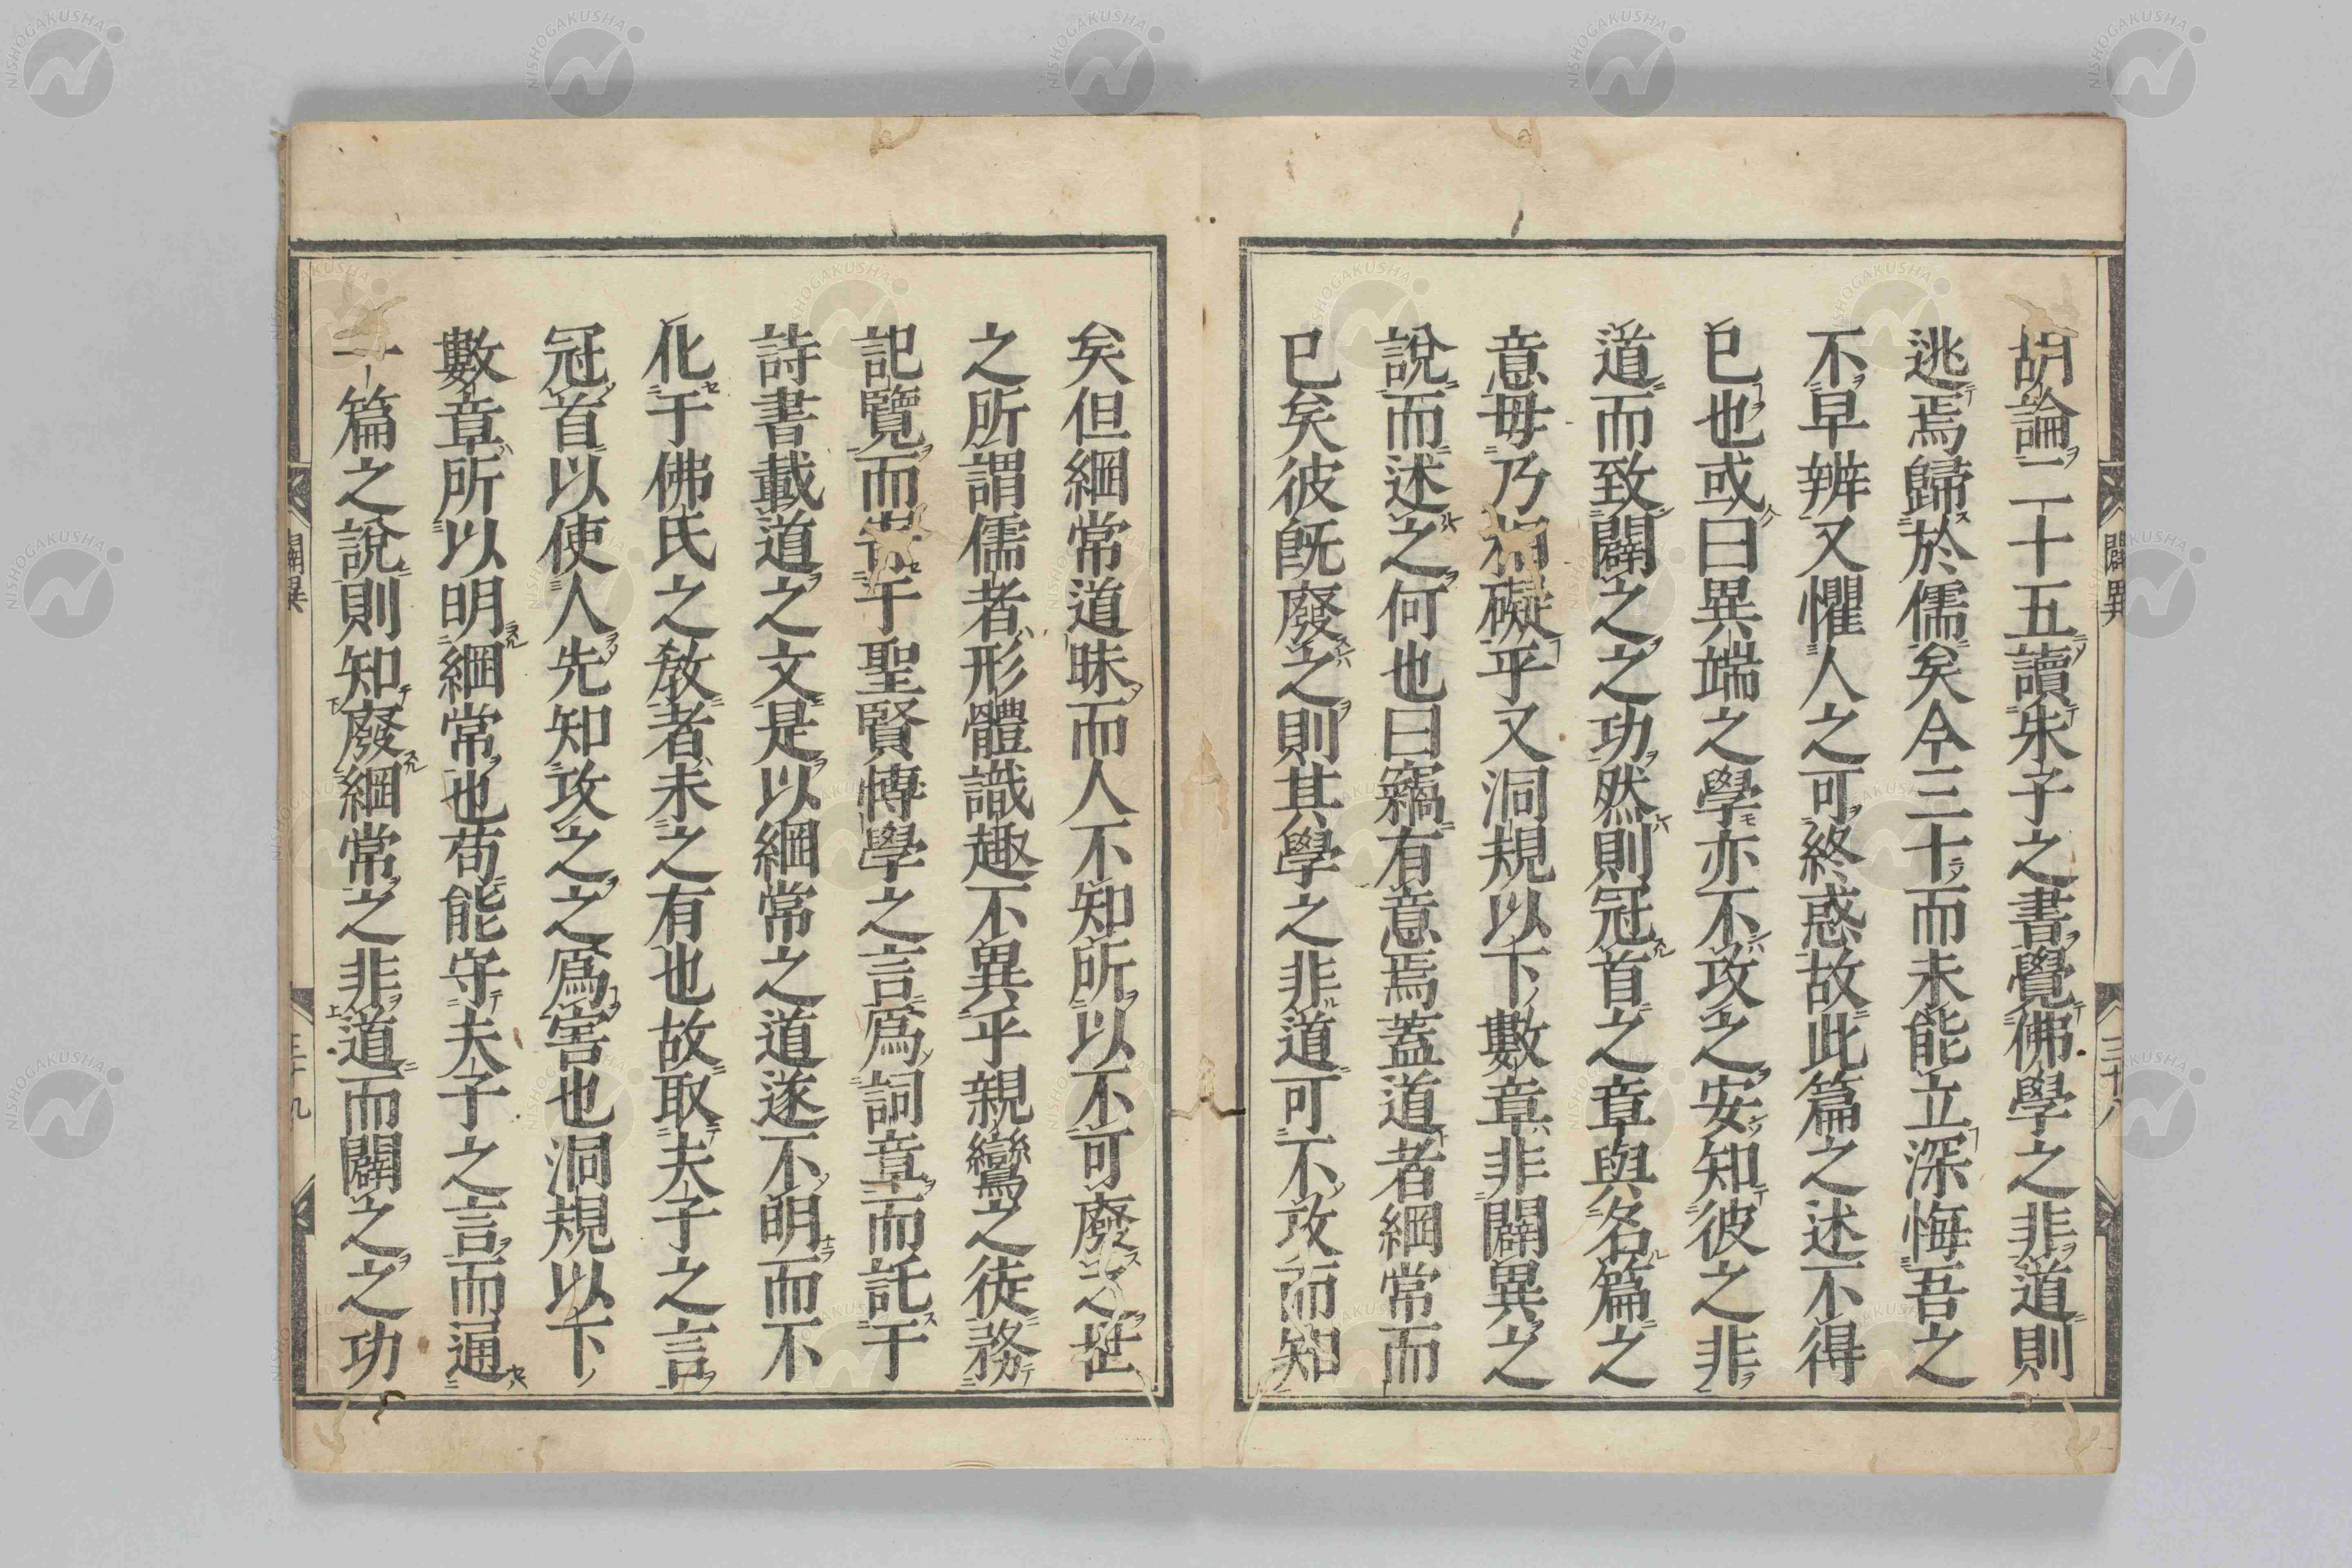 胡論二十五讀朱子之書覺佛學之非道則
逃焉歸於儒矣今三十而未能立深悔吾之
不早辨又懼人之可終惑故此篇之述不得
已也或曰異端之學亦不攻之安知彼之非
道而致闢之之功然則冠首之章與名篇之
意毋乃相礙乎又洞規以下數章非闢異之
說而述之何也曰竊有意焉蓋道者綱常而
已矣彼既廢之則其學之非道可不攻而知
闢異 三十八
矣但綱常道昧而人不知所以不可廢之世
之所謂儒者形體識趣不異乎親鸞之徒務
記覽而昔于聖賢博學之言爲詞章而託于
詩書載道之文是以綱常之道遂不明而不
化于佛氏之教者未之有也故取夫子之言
冠首以使人先知攻之之爲害也洞規以下
數章所以明綱常也苟能守夫子之言而通
一篇之說則知廢綱常之非道而闢之之功
闢異 三十九
NISHOGAKUSHA